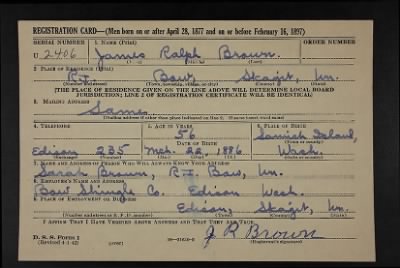 REGISTRATION CARD—(Men born on or after April 28, 1877 and on or before February 16, 1897)
SERIAL NUMBER 1. NAME (Print) ORDER NUMBER
U 2406 James Ralph Brown.
(First) (Middle) (Last)
2. PLACE OF RESIDENCE (Print)
R.I. Bow, Skagit, Wn.
(Number and street) (Town, township, village, or city) (County) (State)
[THE PLACE OF RESIDENCE GIVEN ON THE LINE ABOVE WILL DETERMINE LOCAL BOARD
JURISDICTION; LINE 2 OF REGISTRATION CERTIFICATE WILL BE IDENTICAL]
3. MAILING ADDRESS
Same.
[Mailing address if other than place indicated on line 2. If same insert word same]
4. TELEPHONE 5. AGE IN YEARS 6. PLACE OF BIRTH
56 Samish Island,
DATE OF BIRTH
Edison 235 Mch. 22, 1886 Wash.
(Exchange) (Number) (Mo.) (Day) (Yr.) (State or country)
7. NAME AND ADDRESS OF PERSON WHO WILL ALWAYS KNOW YOUR ADDRESS
Sarah Brown, R.I. Bow, Wn.
8. EMPLOYER'S NAME AND ADDRESS
Bow Shingle Co. Edison Wash.
9. PLACE OF EMPLOYMENT OR BUSINESS
Edison, Skagit, Wn.
(Number and street or R. F. D. number) (Town) (County) (State)
I AFFIRM THAT I HAVE VERIFIED ABOVE ANSWERS AND THAT THEY ARE TRUE.
D. S. S. Form 1
(Revised 4-1-42) (over) J. R. Brown
(Registrant's signature)